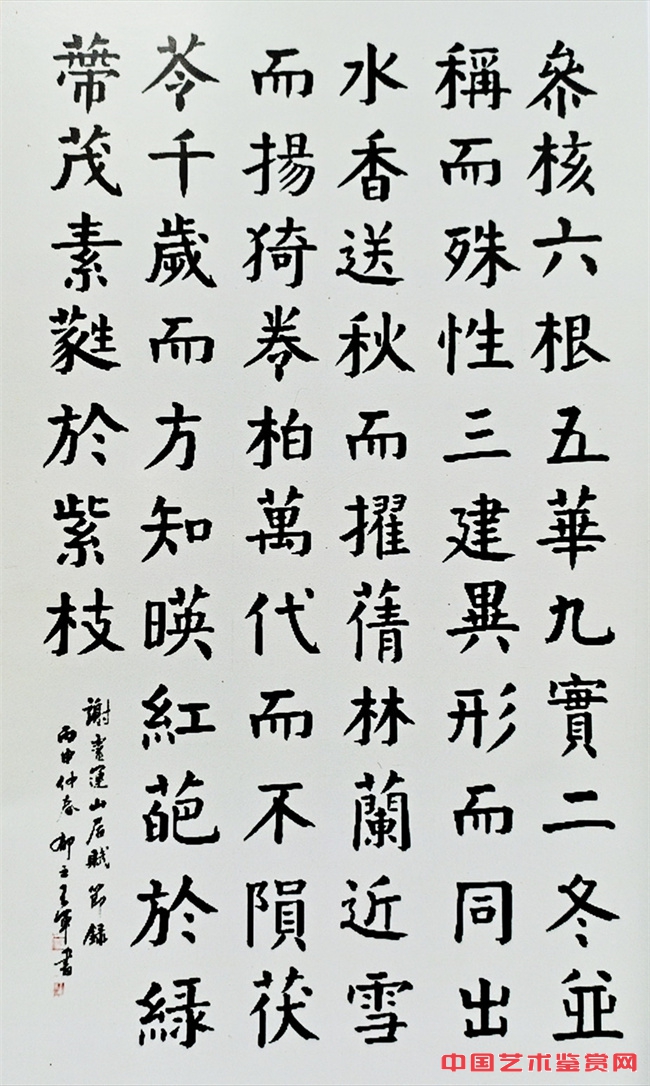 叅核六根五華九實二冬並
稱而殊性三建異形而同出
水香送秋而擢蒨林蘭近雪
而揚猗卷柏萬代而不隕茯
苓千歲而方知暎紅葩於綠
蔕茂素蕤於紫枝
謝靈運山居賦節錄
丙申仲春書
中国艺术鉴赏网